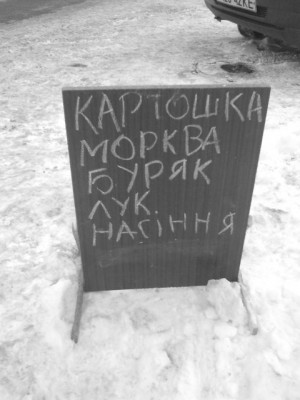 КАРТОШКА
МОРКВА
БУРЯК
ЛУК.
НАСІННЯ